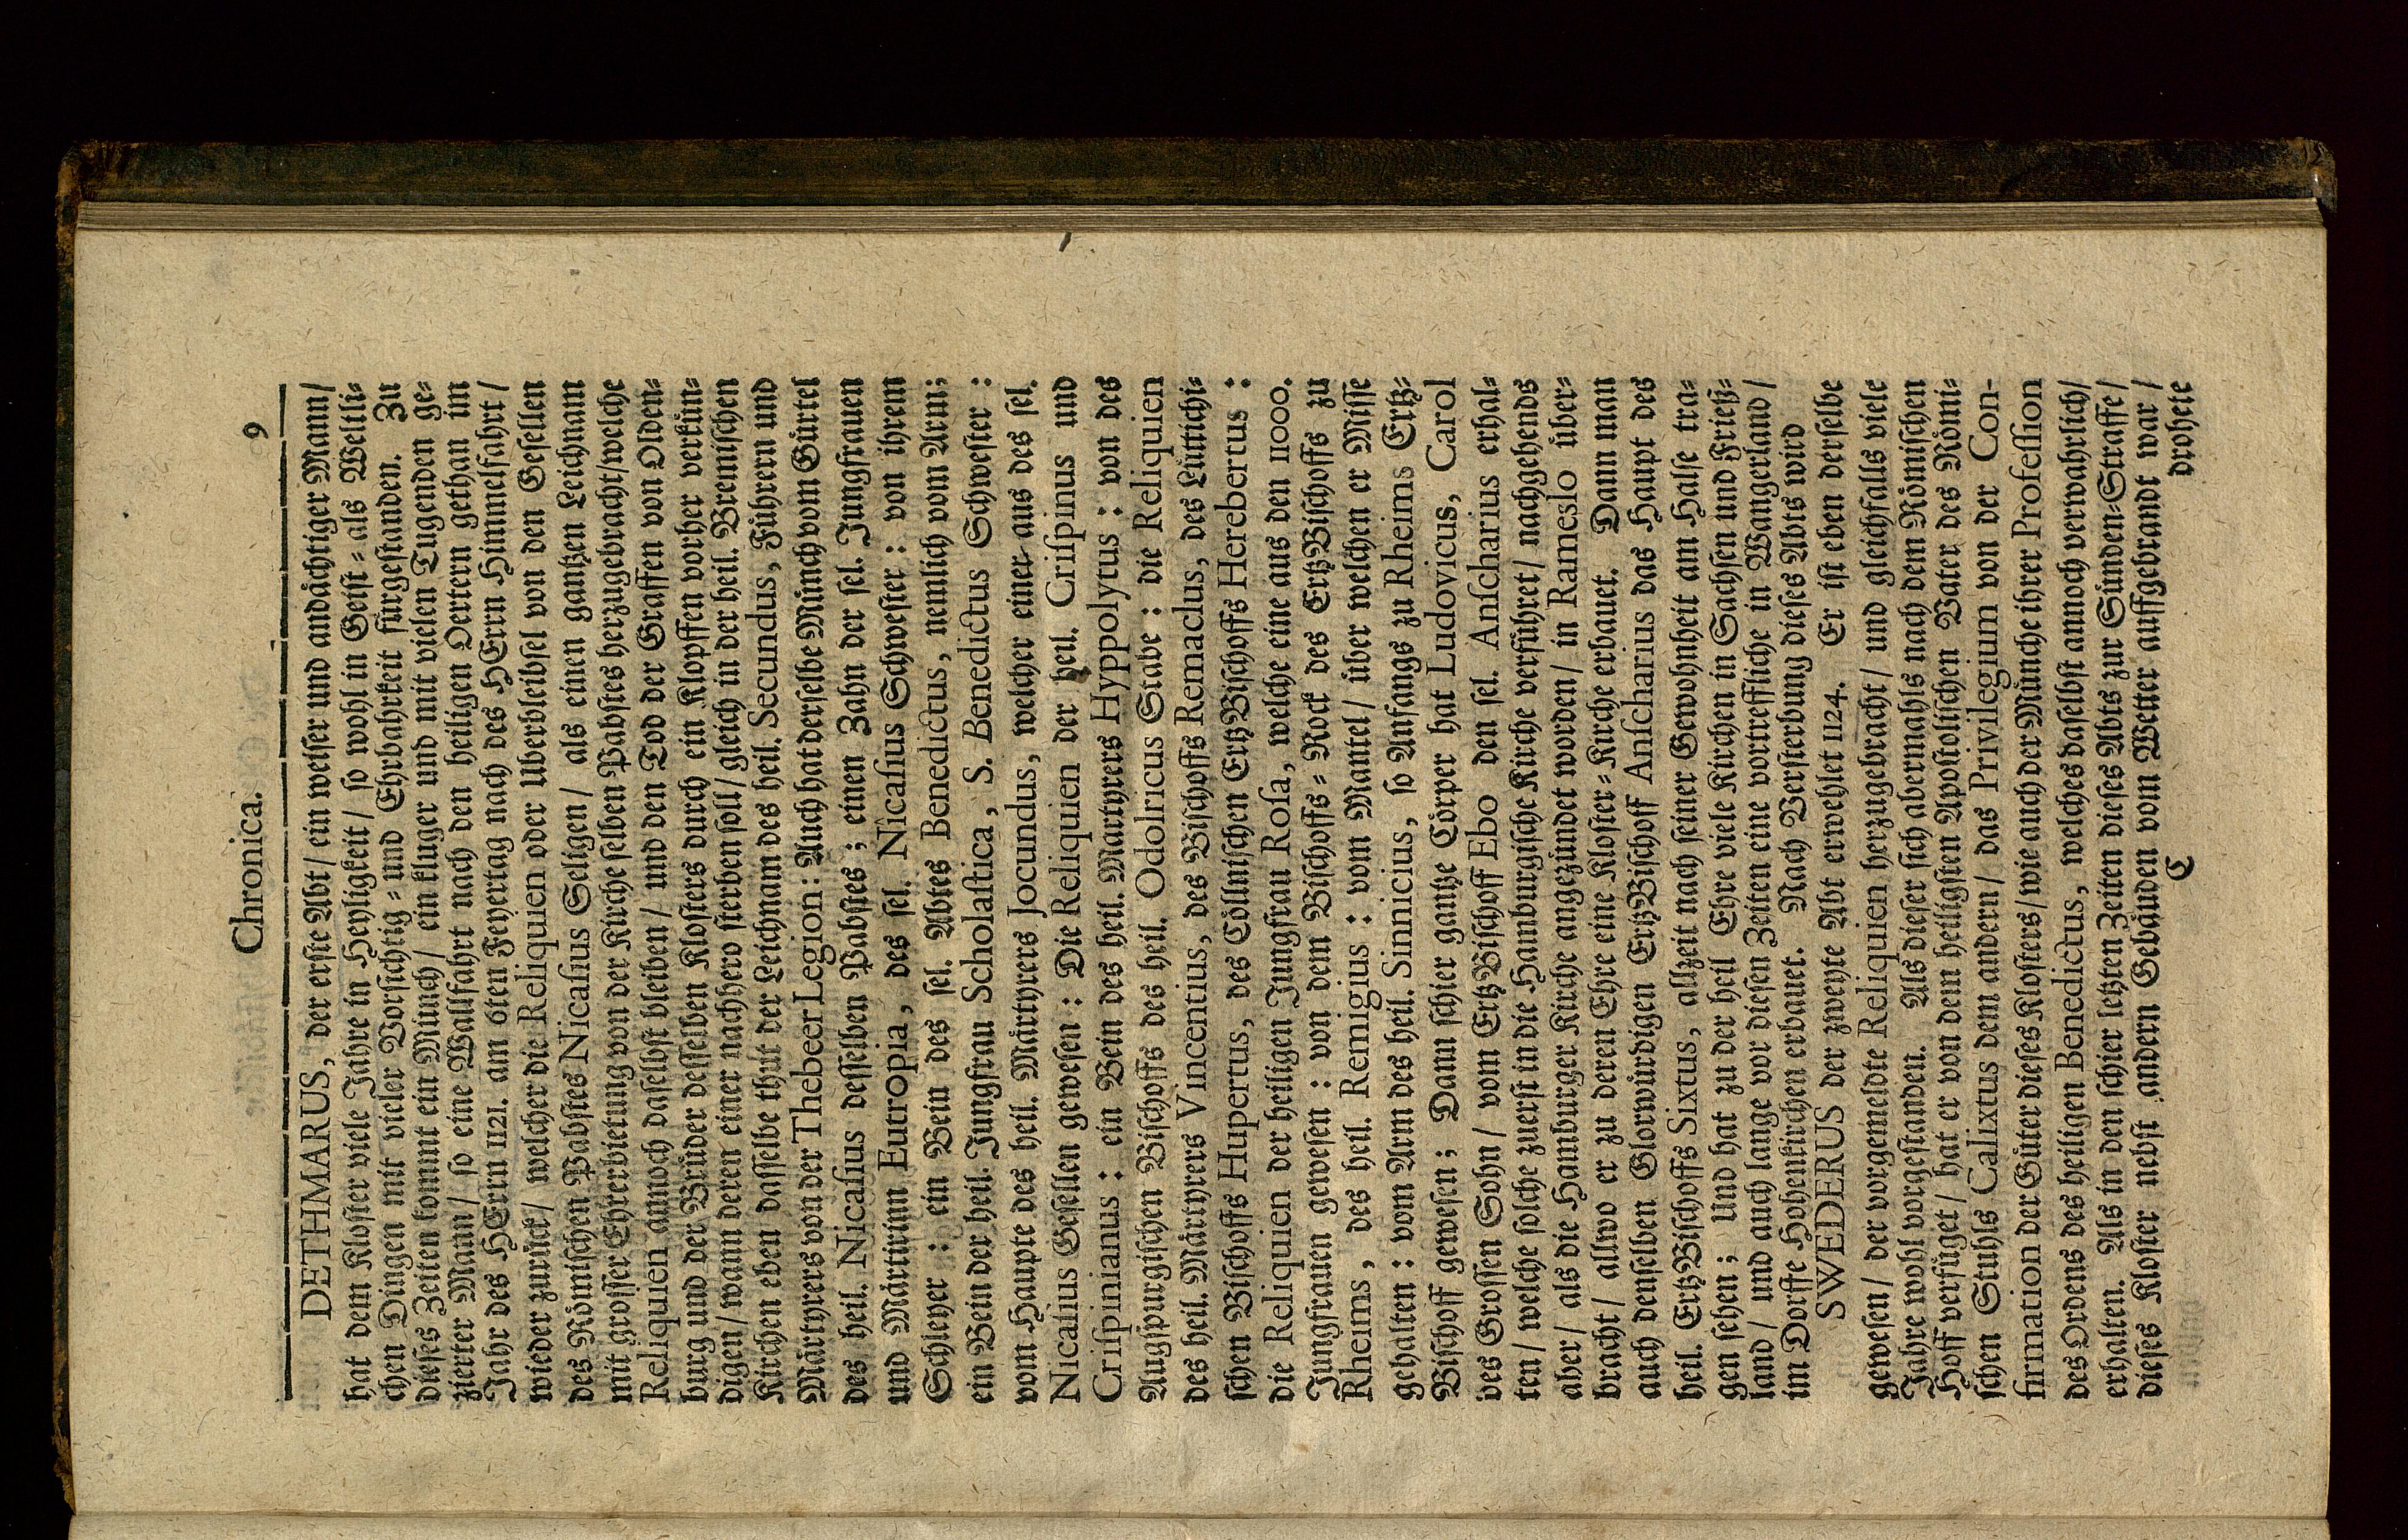 Chronica. 9
DETHMARUS, der erste Abt/ ein weiser und andächtiger Mann/
hat dem Kloster viele Jahre in Heyligkeit/ so wohl in Geist- als Weltli-
chen Dingen mit vieler Vorsichtig- und Ehrbahrkeit fürgestanden. Zu
dieses Zeiten kommt ein Münch/ ein kluger und mit vielen Tugenden ge-
zierter Mann/ so eine Wallfahrt nach den heiligen Oertern gethan im
Jahr des HErrn 1121. am 6ten Feyertag nach des HErrn Himmelfahrt/
wieder zurück/ welcher die Reliquien oder Uberbleibsel von den Gesellen
des Römischen Pabstes Nicasius Seligen/ als einen gantzen Leichnam
mit grosser Ehrerbietung von der Kirche selben Pabstes herzugebracht/welche
Reliquien annoch daselbst bleiben/ und den Tod der Graffen von Olden-
burg und der Brüder desselben Klosters durch ein Klopffen vorher verkün-
digen/ wann deren einer nachhero sterben soll/ gleich in der heil. Bremischen
Kirchen eben dasselbe thut der Leichnam des heil. Secundus, Führern und
Märtyrers von der Thebeer Legion: Auch hat derselbe Münch vom Gürtel
des heil. Nicasius desselben Pabstes; einen Zahn der sel. Jungfrauen
und Märtirinn Eutropia, des sel. Nicasius Schwester: von ihrem
Schleyer: ein Bein des sel. Abtes Benedictus, nemlich vom Arm;
ein Bein der heil. Jungfrau Scholastica, S. Benedictus Schwester:
vom Haupte des heil. Märtyrers Jocundus, welcher einer aus des sel.
Nicasius Gesellen gewesen: Die Reliquien der heil. Crispinus und
Crispinianus: ein Bein des heil. Martyrers Hyppolytus: von des
Augspurgischen Bischoffs des heil. Odolricus Stabe: die Reliquien
des heil. Märtyrers Vincentius, des Bischoffs Remaclus, des Lüttichi-
schen Bischoffs Hupertus, des Cöllnischen ErtzBischoffs Herebertus:
die Reliquien der heiligen Jungfrau Rosa, welche eine aus den 11000.
Jungfrauen gewesen: von dem Bischoffs-Rock des ErtzBischoffs zu
Rheims, des heil. Remigius: vom Mantel/ über welchen er Misse
gehalten: vom Arm des heil. Sinnicius, so Anfangs zu Rheims Ertz-
Bischoff gewesen; Dann schier gantze Cörper hat Ludovicus, Carol
des Grossen Sohn/ vom ErtzBischoff Ebo den sel. Anscharius erhal-
ten/ welche solche zuerst in die Hamburgische Kirche verführet/ nachgehends
aber/ als die Hamburger Kirche angezündet worden/ in Rameslo über-
bracht/ allwo er zu deren Ehre eine Kloster-Kirche erbauet. Dann man
auch denselben Glorwürdigen ErtzBischoff Anscharius das Haupt des
heil. ErtzBischoffs Sixtus, allzeit nach seiner Gewohnheit am Halse tra-
gen sehen; Und hat zu der heil Ehre viele Kirchen in Sachsen und Frieß-
land/ und auch lange vor diesen Zeiten eine vortreffliche in Wangerland/
im Dorffe Hohenkirchen erbauet. Nach Versterbung dieses Abts wird
SWEDERUS der zweyte Abt erwehlet 1124. Er ist eben derselbe
gewesen/ der vorgemeldte Reliquien herzugebracht/ und gleichfalls viele
Jahre wohl vorgestanden. Als dieser sich abermahls nach dem Römischen
Hoff verfüget/ hat er von dem heiligsten Apostolischen Vater des Römi-
schen Stuhls Calixtus dem andern/ das Privilegium von der Con-
firmation der Güter dieses Klosters/ wie auch der Münche ihrer Profession
des Ordens des heiligen Benedictus, welches daselbst annoch verwahrlich/
erhalten. Als in den schier letzten Zeiten dieses Abts zur Sünden-Straffe/
dieses Kloster nebst andern Gebäuden vom Wetter auffgebrandt war/
C drohete